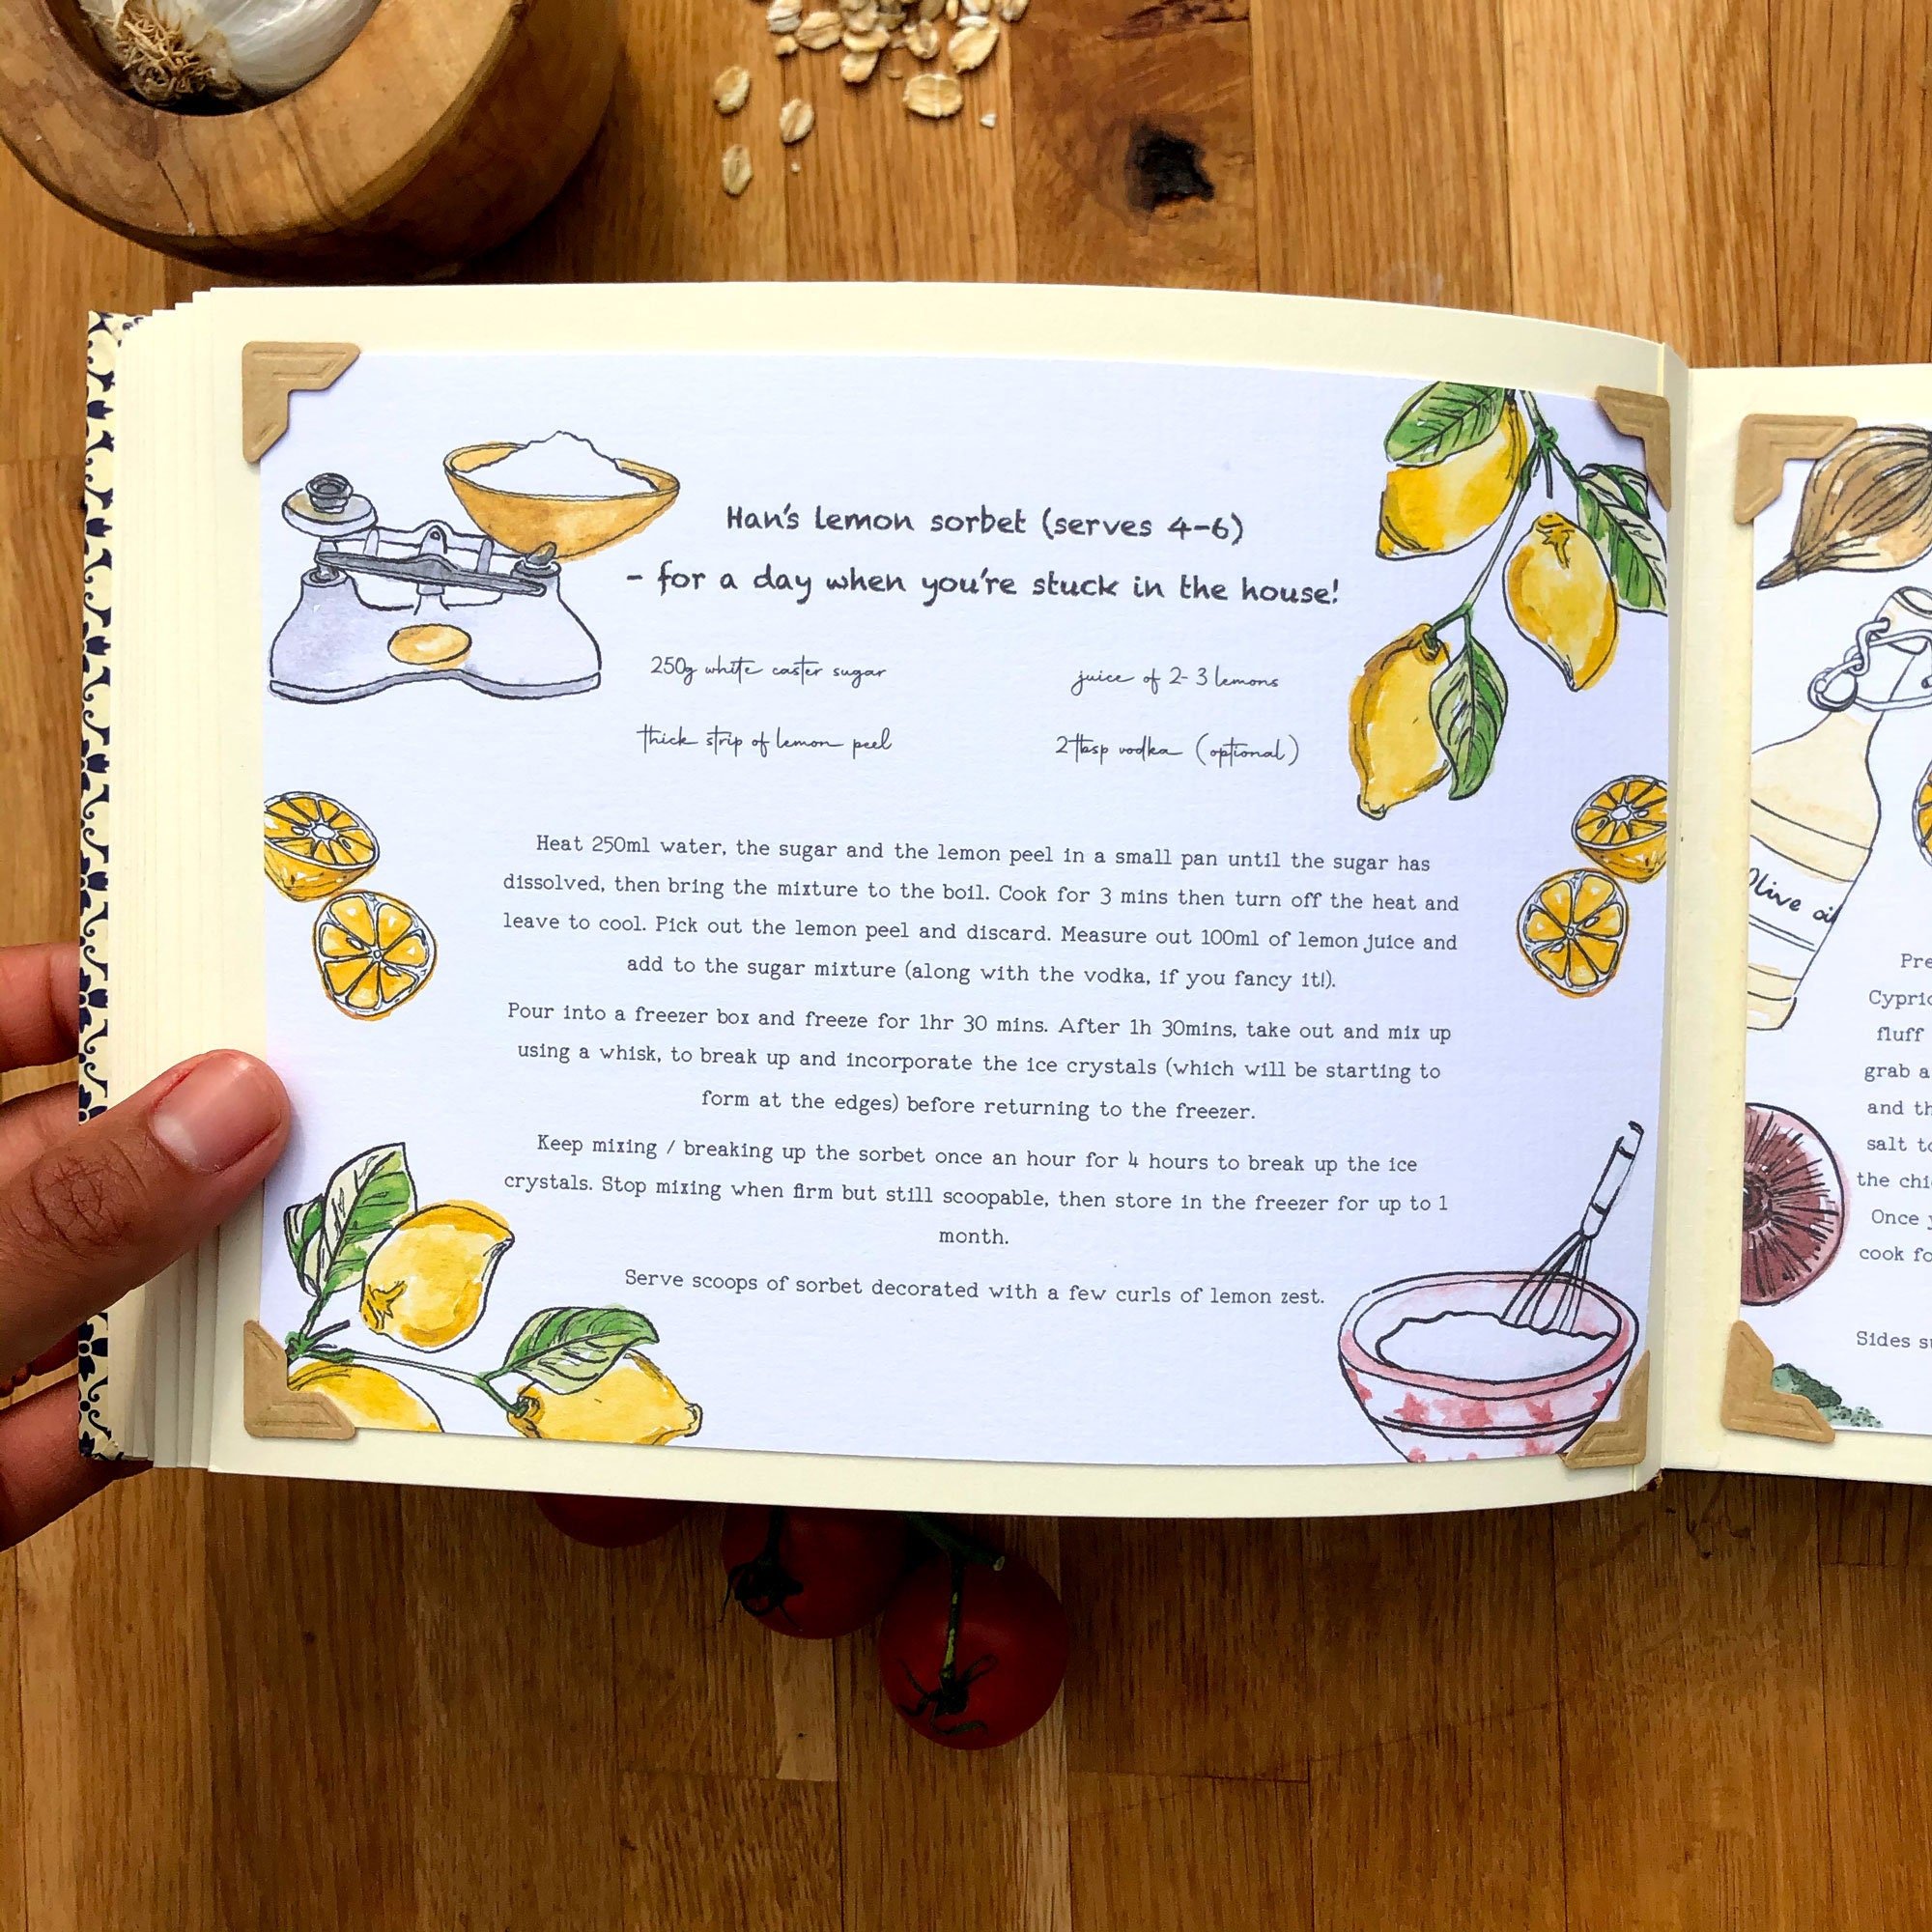 Han's lemon sorbet (serves 4-6)
- for a day when you're stuck in the house!
250g white caster sugar
juice of 2-3 lemons
thick strip of lemon peel
2 tbsp vodka (optional)
Heat 250ml water, the sugar and the lemon peel in a small pan until the sugar has
dissolved, then bring the mixture to the boil. Cook for 3 mins then turn off the heat and
leave to cool. Pick out the lemon peel and discard. Measure out 100ml of lemon juice and
add to the sugar mixture (along with the vodka, if you fancy it!).
Pour into a freezer box and freeze for 1hr 30 mins. After 1h 30mins, take out and mix up
using a whisk, to break up and incorporate the ice crystals (which will be starting to
form at the edges) before returning to the freezer.
Keep mixing / breaking up the sorbet once an hour for 4 hours to break up the ice
crystals. Stop mixing when firm but still scoopable, then store in the freezer for up to 1
month.
Serve scoops of sorbet decorated with a few curls of lemon zest.
Olive oil
fluff
grab a
and
salt
the
Once
cook
Sides